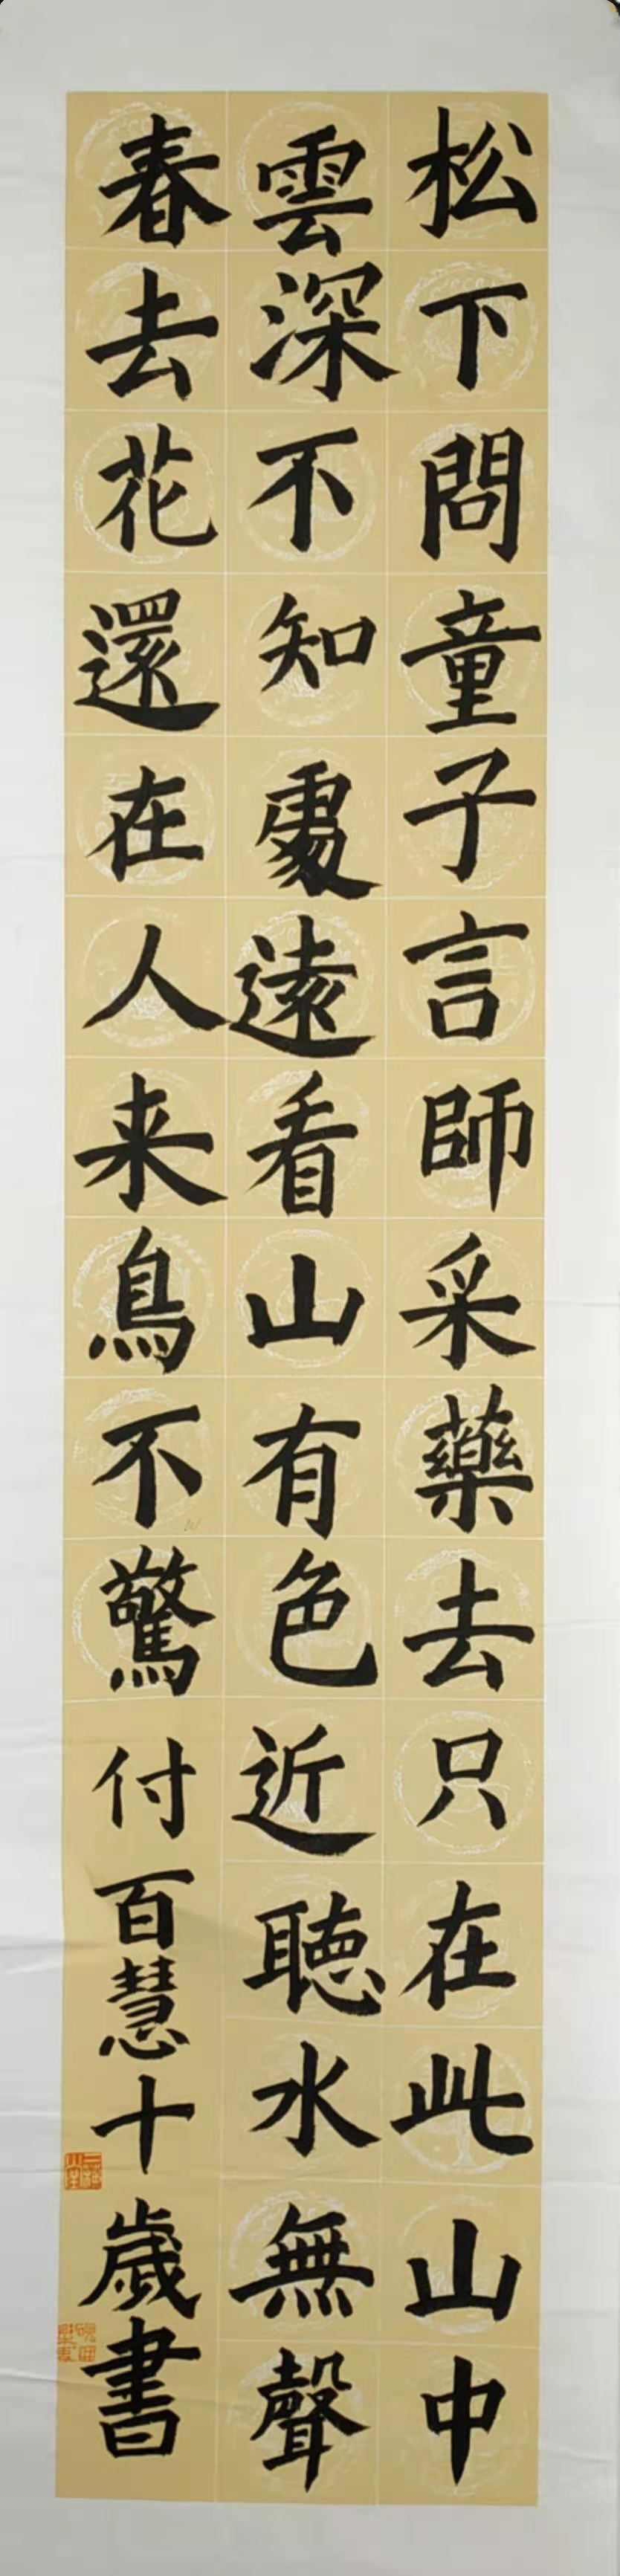 松下問童子言師采藥去只在此山中
雲深不知處遠看山有色近聽水無聲
春去花還在人来鳥不驚付百慧十歲書